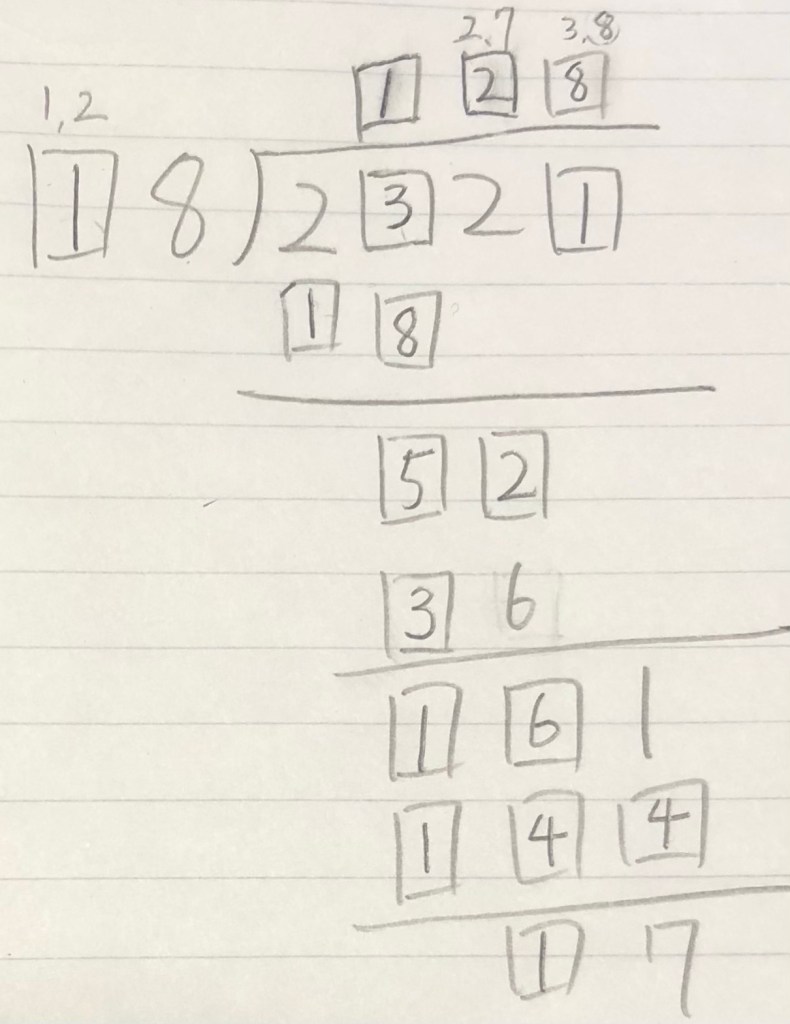 2,7 3,8
1 2 8
1,2
1 8 ) 2 3 2 1
1 8
5 2
3 6
1 6 1
1 4 4
1 7